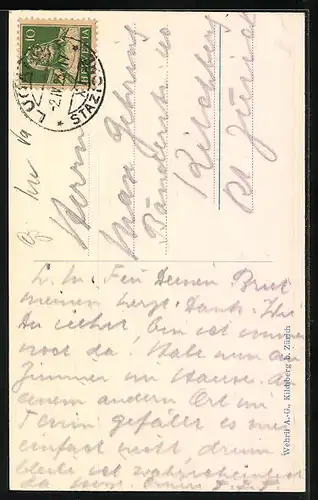 10
HELVETIA
LUGANO
STAZIONE
Herrn
Max Gehring
Bändlistr.
Kilchberg
Kt Zürich
L. M. Für Deinen Brief
meinen herzl. Dank. Wie
Du siehst, bin ich immer
noch da. Habe nun ein
Zimmer im Hause. An
einem andern Ort im
Tessin gefällt es mir
einfach nicht, drum
bleibe ich wahrscheinlich
da
Wehrli A.-G., Kilchberg b. Zürich